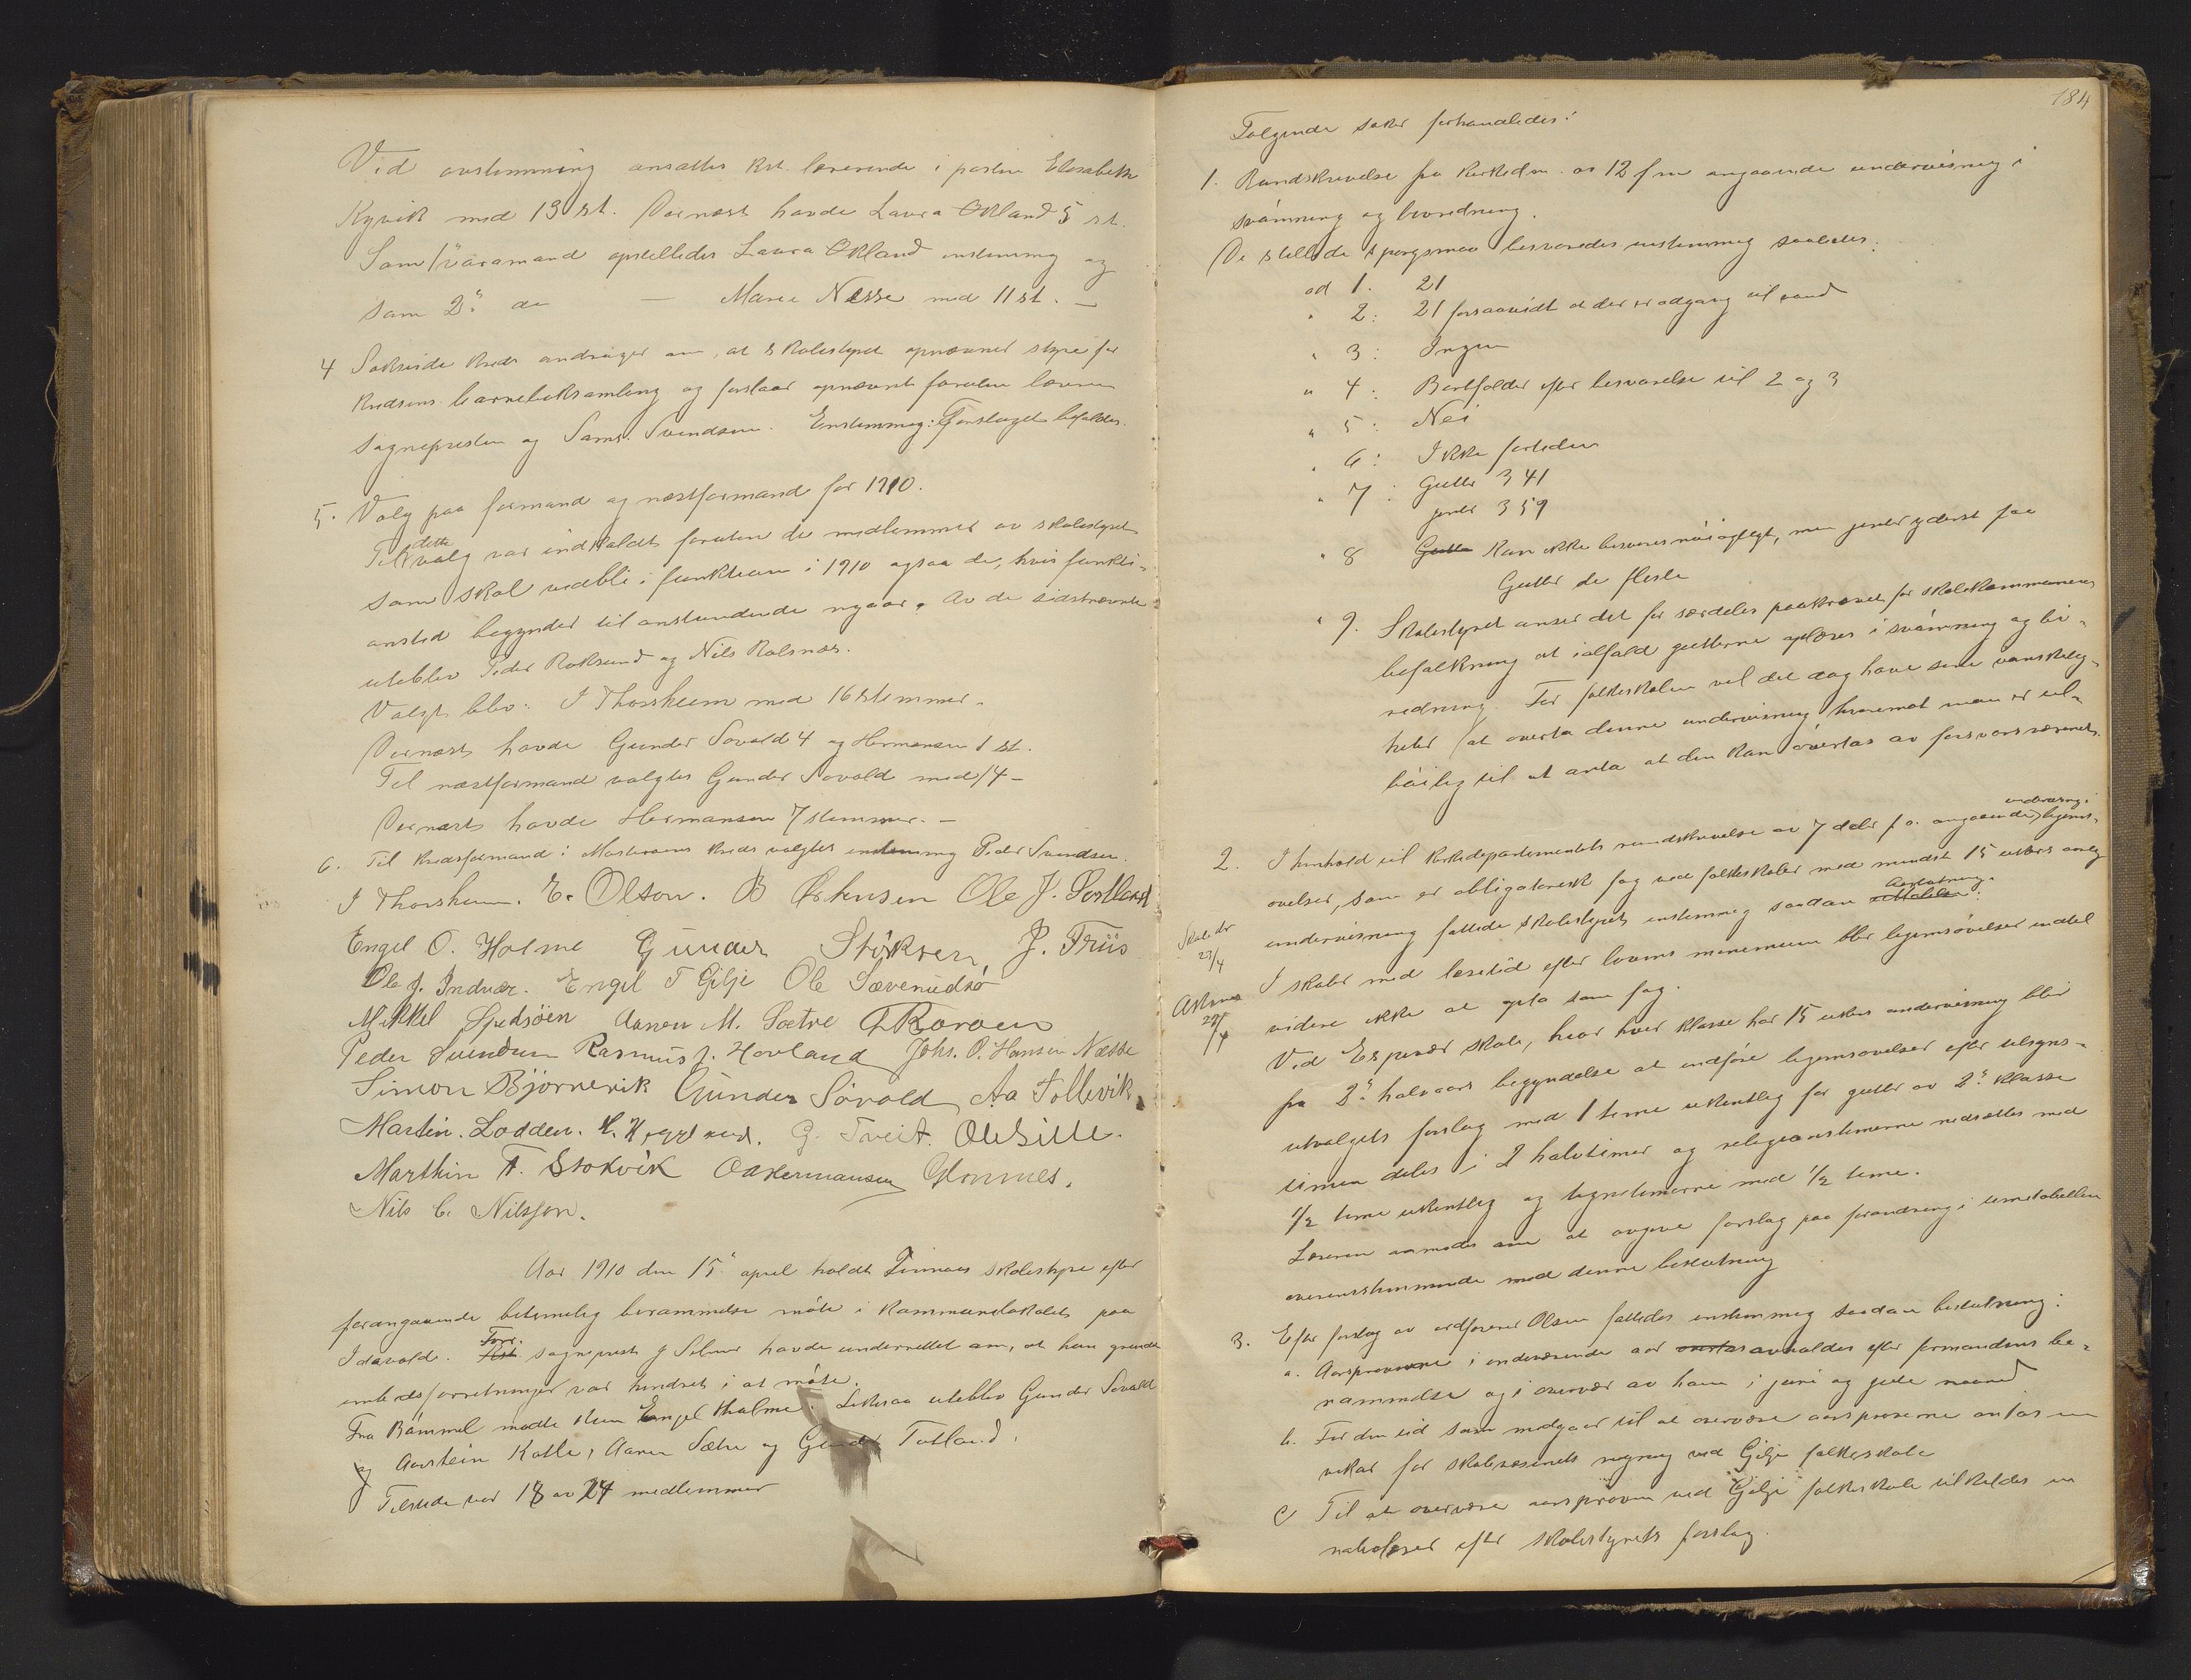 Ved avstemning ansattes kst. lærerinde i posten Elisabeth
Kyvik med 13 st. Dernæst havde Laura Økland 5 st.
Som 1ste varamand opstilledes Laura Økland enstemmig og
som 2n do — Marie Nesse med 11 st. —
4 kreds andrager om, at skolestyret opnævner styre for
kredsens barneboksamling og foreslaar opnævnt foruten læreren
sognepresten og Saml. Svendsen. Enstemmig: Forslaget bifaldes.
5. Valg paa formand og næstformand for 1910.
Til dette valg var indkaldt foruten de medlemmer av skolestyret
som skal vedbli i funktion i 1910 ogsaa de, hvis funkti-
onstid begynder til anstundende nyaar. Av de sidstnævnte
uteblev Peder Roksund og Nils Kalsnæs.
Valgt blev: J Thorsheim med 16 stemmer.
Dernæst havde Gunder Søvold 4 og Hermansen 1 st.
Til næstformand valgtes Gunder Søvold med 14 —
Dernæst havde Hermansen 7 stemmer. —
6. Til kredsformand i Mosterøens kreds valgtes enstemmig Peder Svendsen.
J Thorsheim. E. Olson. B Ole J.
Engel O. Holme Gunder Stöksen J. Friis
Ole J. Indvær. Engel T Gilje Ole Sævenudsö
Mikkel Spedsöen Aanen M. Sætre
Peder Svendsen Rasmus J. Hovland Johs. O. Hansen Næsse
Simon Björnevik Gunder Sövold Aa Tollevik
Martin. Lodden. G. Tveit. Ole Sille.
Marthin T. Stokvik O Hermansen Glommes.
Nils C. Nilssøn.
Aar 1910 den 15. april holdt Finnaas skolestyre efter
forangaaende betimelig berammelse möte i kommunelokalet paa
Idavold. Forr. sogneprest J Selmer havde underrettet om, at han grundet
embedsforretninger var hindret i at möte.
Fra Bömmel mötte kun Engel Holme. Likesaa uteblev Gunder Sovold
og Aarstein Katle, Aanen Sætre og Gunder Totland.
Tilstede var 18 av 24 medlemmer
184
Følgende saker forhandledes:
1. Rundskrivelse fra Kirkedm. av 12 f m angaaende undervisning i
svømning og livredning.
De stillede spørgsmaal besvaredes enstemmig saaledes:
ad 1. 21
" 2: 21 forsaavidt at der er adgang til vand
" 3: Ingen
" 4: Bortfalder efter besvarelse til 2 og 3
" 5: Nei
" 6: Ikke fortiden
" 7: Gutter 341
jenter 359
" 8 Gutter Kan ikke besvares nöiagtigt, men jenter yderst faa
Gutter de fleste
" 9. Skolestyret anser det for særdeles paakrævet for skolekommunens
befolkning at ialfald gutterne oplæres i svömning og liv-
redning. For folkeskolen vil det dog have sine vanskelig-
heter at overta denne undervisning hvorimot man er til-
böielig til at anta at den kan overtas av forsvarsvæsenet.
2. I henhold til Kirkedepartementets rundskrivelse av 7 decbr f. a. angaaende undervisning i legems-
övelser, som er obligatorisk fag ved folkeskoler med mindst 15 ukers aarlig
undervisning fattede skolestyret enstemmig saadan beslutning:
Skoledir
23/4
Askvær
29/4
I skoler med læsetid efter lovens minimum blir legemsövelser indtil
videre ikke at opta som fag.
Ved Espevær skole, hvor hver klasse har 15 ukers undervisning blir
fra 2n halvaars begyndelse at indföre legemsövelser efter tilsyns-
utvalgets forslag med 1 time ukentlig for gutter av 2n klasse
timen deles i 2 halvtimer og religionstimerne nedsættes med
1/2 time ukentlig og tegnetimerne med 1/2 time.
Læreren anmodes om at avgive forslag paa forandring i timetabellen
overensstemmende med denne beslutning
3. Efter forslag av ordförer Olsen fattedes enstemmig saadan beslutning:
a. Aarspröverne i indeværende aar avholdes efter formandens be-
rammelse og i overvær av ham i juni og juli maaned
b. For den tid som medgaar til at overvære aarspröverne antas en
vikar for skolevæsenets regning ved Gilje folkeskole
c Til at overvære aarspröven ved "Gilje" folkeskole tilkaldes en
nabolærer efter skolestyrets forslag.